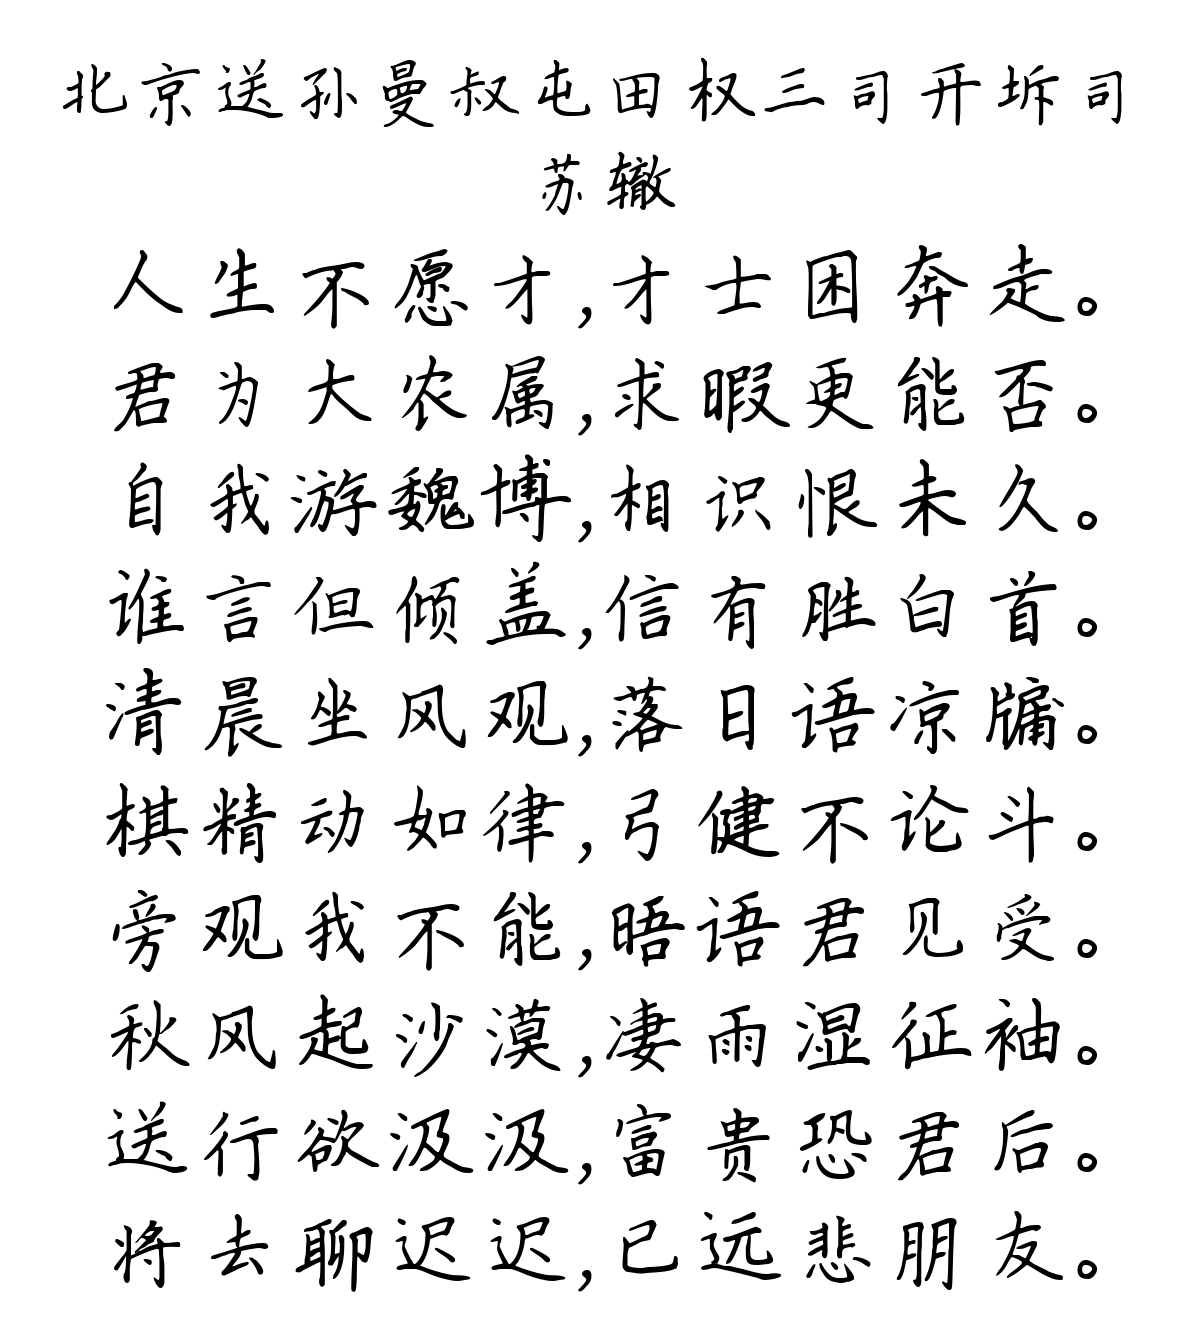 北京送孙曼叔屯田权三司开坼司
苏辙
人生不愿才,才士困奔走。
君为大农属,求暇更能否。
自我游魏博,相识恨未久。
谁言但倾盖,信有胜白首。
清晨坐风观,落日语凉牖。
棋精动如律,弓健不论斗。
旁观我不能,晤语君见受。
秋风起沙漠,凄雨湿征袖。
送行欲汲汲,富贵恐君后。
将去聊迟迟,已远悲朋友。